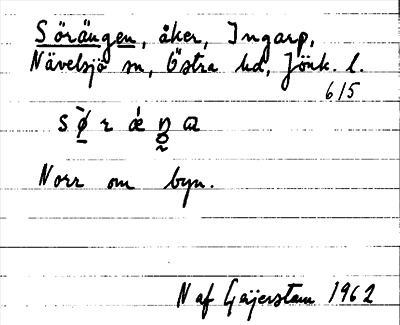 Sörängen, åker, Ingarp,
Nävelsjö sn, Östra hd, Jönk. l.
615
Norr om byn.
N af Geijerstam 1962